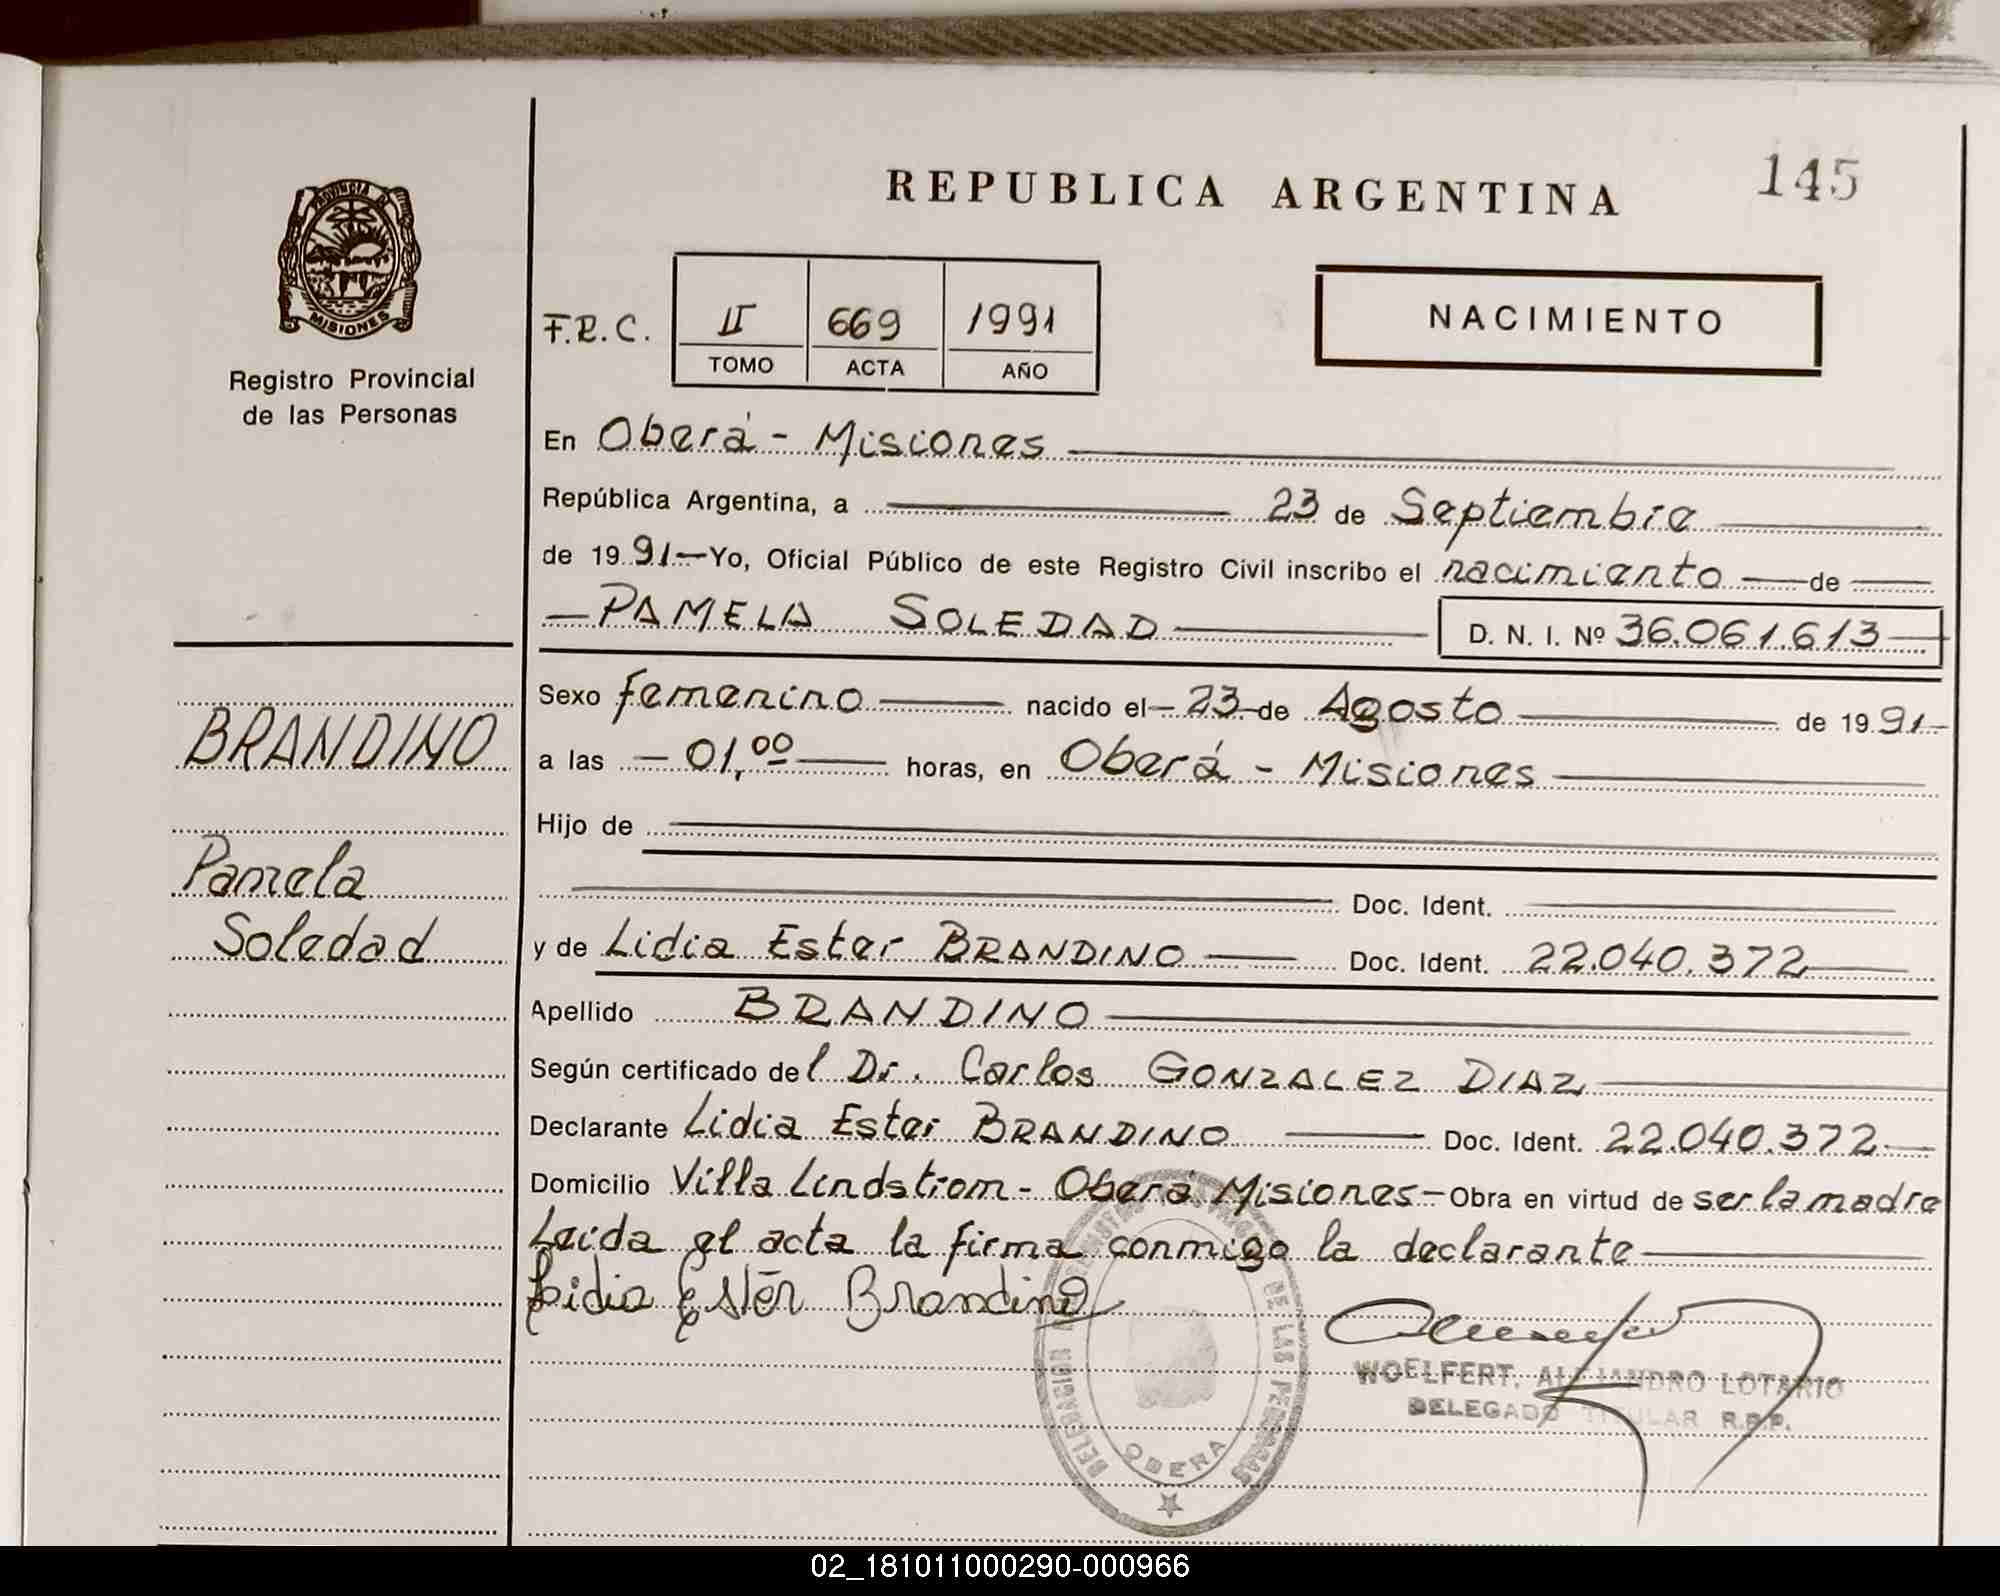 REPUBLICA ARGENTINA
145
PROVINCIA DE
MISIONES
Registro Provincial
de las Personas
F.R.C.
II 669 1991
TOMO ACTA AÑO
NACIMIENTO
En Oberá - Misiones
República Argentina, a 23 de Septiembre
de 1991 Yo, Oficial Público de este Registro Civil inscribo el nacimiento de
PAMELA SOLEDAD D. N. I. Nº 36.061.613
Sexo femenino nacido el 23 de Agosto de 1991
BRANDINO
a las 01,00 horas, en Oberá - Misiones
Hijo de
Pamela
Doc. Ident.
Soledad
y de Lidia Ester BRANDINO Doc. Ident. 22.040.372
Apellido BRANDINO
Según certificado del Dr. Carlos GONZALEZ DIAZ
Declarante Lidia Ester BRANDINO Doc. Ident. 22.040.372
Domicilio Villa Lindstrom - Oberá Misiones - Obra en virtud de ser la madre
Leida el acta la firma conmigo la declarante
Lidia Ester Brandino
WOELFERT, ALEJANDRO LOTARIO
DELEGADO TITULAR R.P.P.
DE LAS PERSONAS
OBERA
02_181011000290-000966